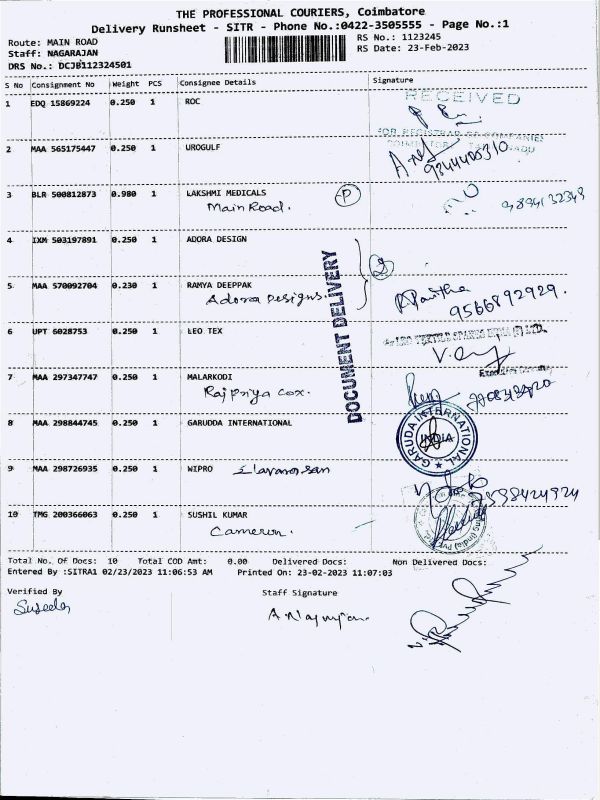 THE PROFESSIONAL COURIERS, Coimbatore
Delivery Runsheet - SITR - Phone No.:0422-3505555 - Page No.:1
Route: MAIN ROAD
Staff: NAGARAJAN
DRS No.: DCJB112324501
RS No.: 1123245
RS Date: 23-Feb-2023
S No Consignment No Weight PCS Consignee Details Signature
1 EDQ 15869224 0.250 1 ROC
RECEIVED
FOR REGISTRAR OF COMPANIES
COIMBATORE TAMILNADU
2 MAA 565175447 0.250 1 UROGULF
3 BLR 500812873 0.980 1 LAKSHMI MEDICALS P
Main Road.
4 IXM 503197891 0.250 1 ADORA DESIGN
5 MAA 570092704 0.230 1 RAMYA DEEPPAK
Adora Designs.
9566892929.
DOCUMENT DELIVERY
6 UPT 6028753 0.250 1 LEO TEX
7 MAA 297347747 0.250 1 MALARKODI
Rajpriya cox.
8 MAA 298844745 0.250 1 GARUDDA INTERNATIONAL
GARUDA INTERNATIONAL
INDIA
9 MAA 298726935 0.250 1 WIPRO Elavarasan
10 TMG 200366063 0.250 1 SUSHIL KUMAR
Cameron.
Total No. Of Docs: 10 Total COD Amt: 0.00 Delivered Docs: Non Delivered Docs:
Entered By :SITRA1 02/23/2023 11:06:53 AM Printed On: 23-02-2023 11:07:03
Verified By
Staff Signature